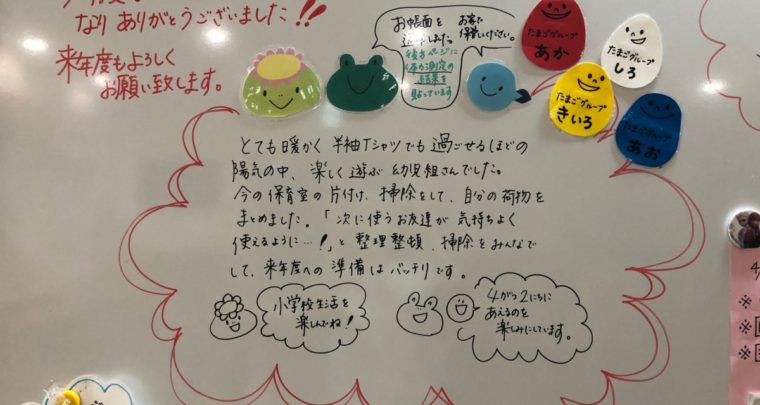 なり ありがとうございました!!
来年度もよろしく
お願い致します。
お帳面を
お家で
保管ください。
後方ページに
体力測定の
結果を
貼っています
たまごグループ
あか
たまごグループ
しろ
たまごグループ
きいろ
たまごグループ
あお
とても暖かく 半袖Tシャツでも過ごせるほどの
陽気の中、楽しく遊ぶ幼児組さんでした。
今の保育室の片付け、掃除をして、自分の荷物を
まとめました。「次に使うお友達が気持ちよく
使えるように…!」と 整理整頓、掃除をみんなで
して、来年度への準備はバッチリです。
小学校生活を
楽しんでね!
4がつ2にちに
あえるのを
楽しみにしています。
4/